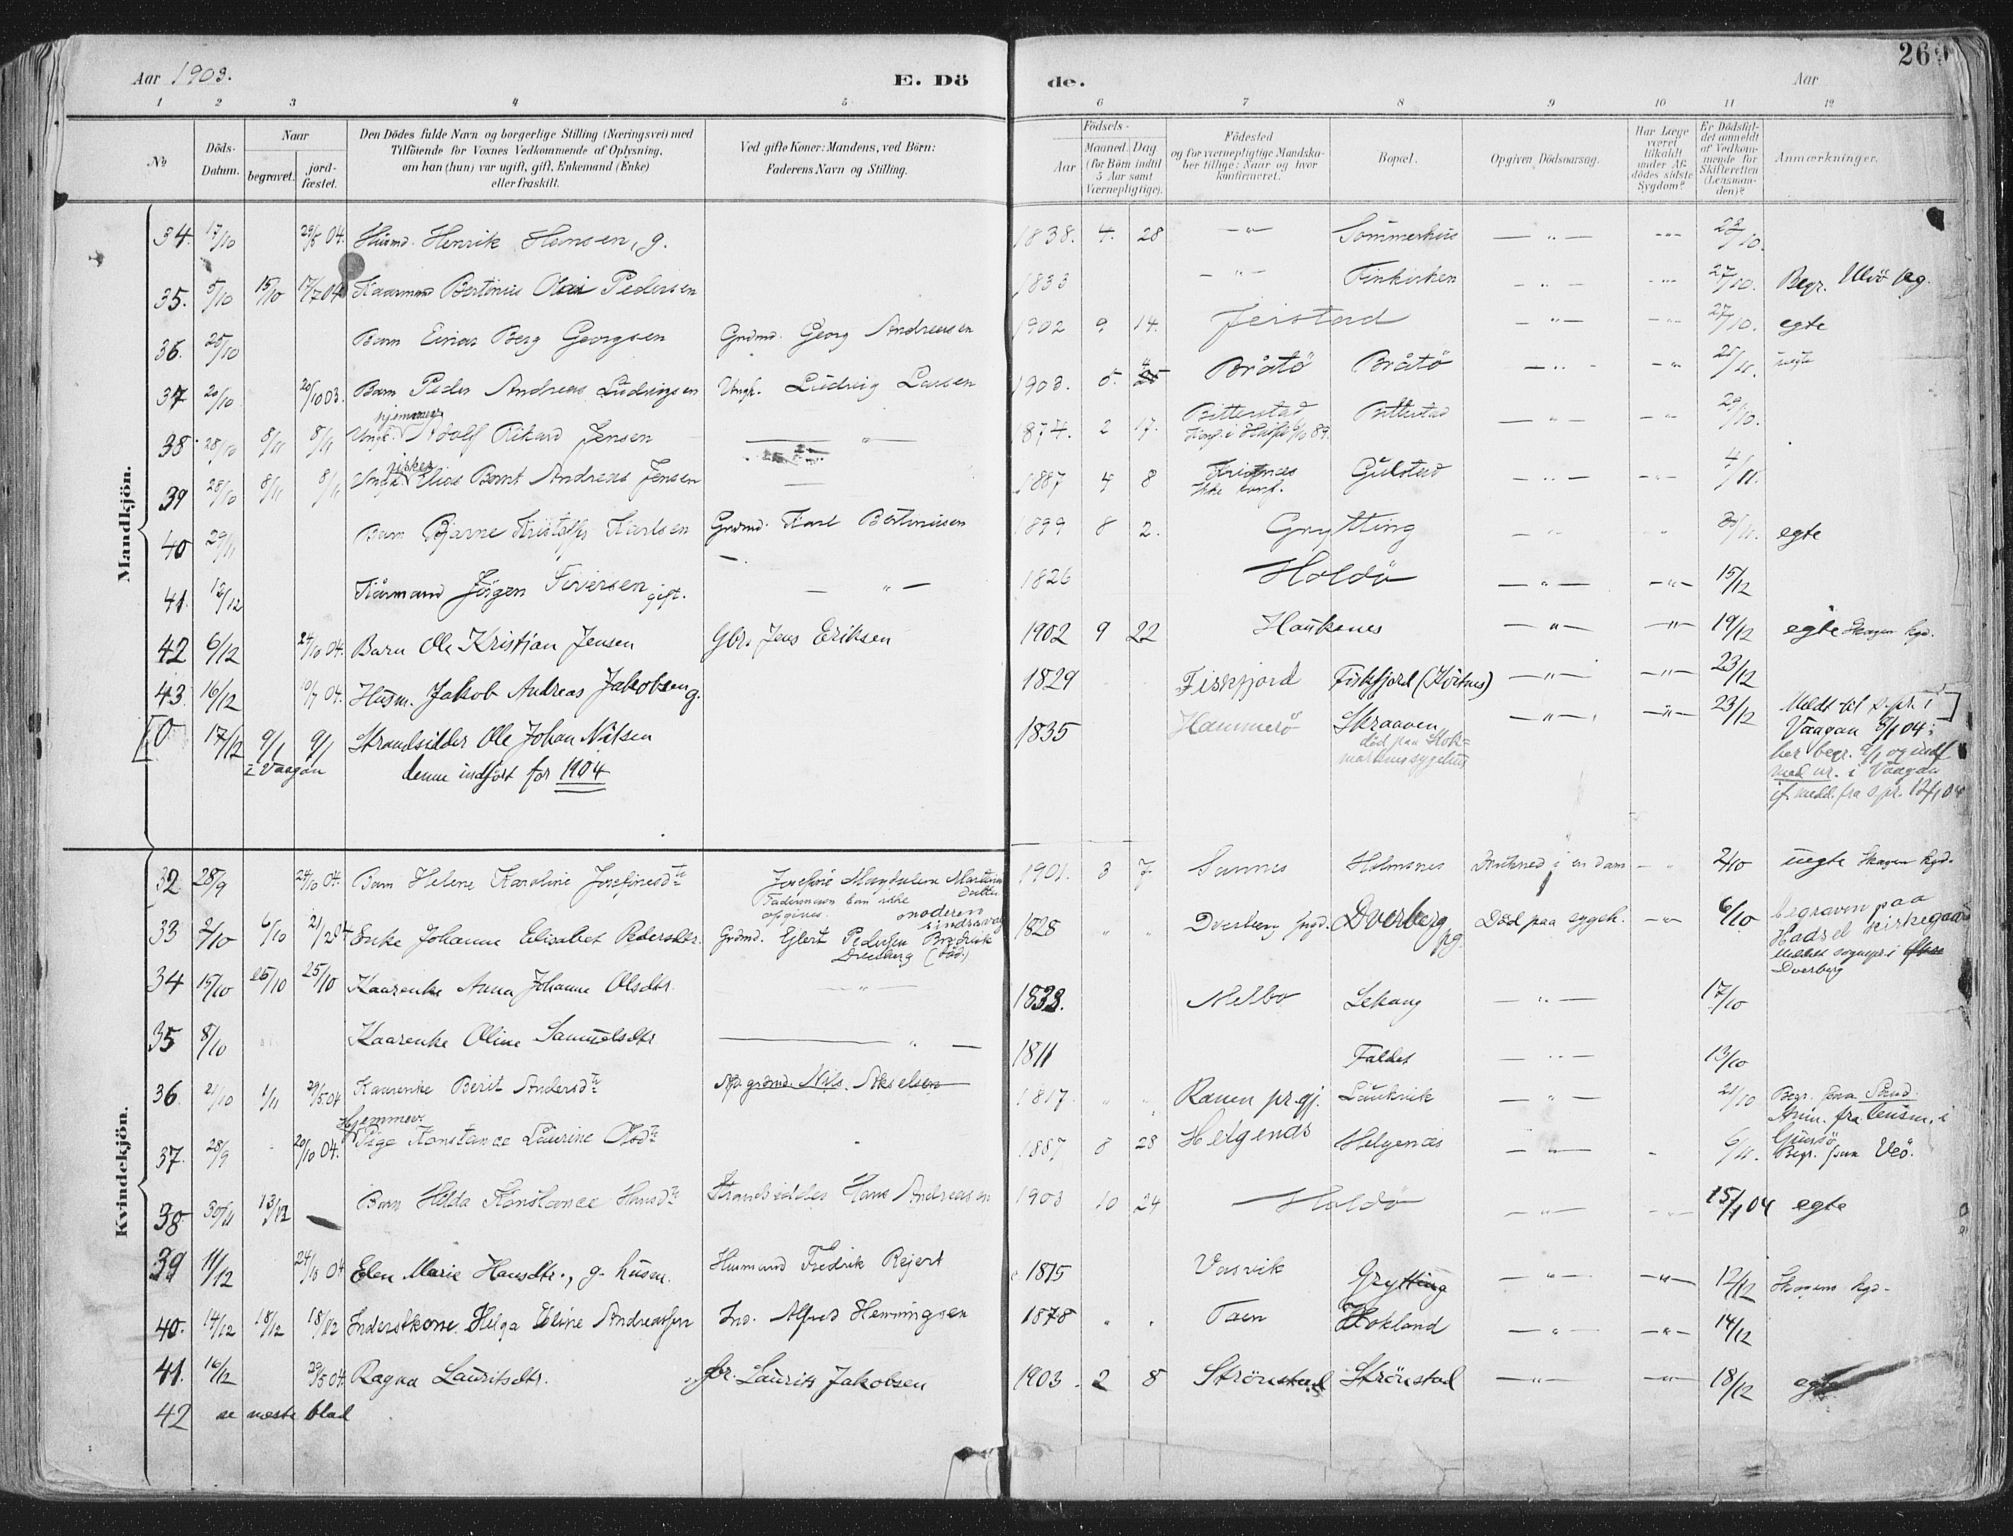 Aar 1903. E. Dö de. Aar 269
1 2 3 4 5 6 7 8 9 10 11 12
No Döds-Datum. Naar begravet. jord-fæstet. Den Dödes fulde Navn og borgerlige Stilling (Næringsvei) med Tilföiende for Voxnes Vedkommende af Oplysning, om han (hun) var ugift, gift, Enkemand (Enke) eller fraskilt. Ved gifte Koner: Mandens, ved Börn: Faderens Navn og Stilling. Födsels- Aar Maaned. Dag (for Börn indtil 5 Aar samt Værnepligtige). Födested og for værnepligtige Mandskaber tillige: Naar og hvor konfirmeret. Bopæl. Opgiven Dödsaarsag. Har Læge været tilkaldt under Afdödes sidste Sygdom? Er Dödsfaldet anmeldt af Vedkommende for Skifteretten (Lensmanden)? Anmærkninger.
Mandkjön.
34. 17/10 29/5 04. Husmd. Henrik Hansen, g. 1838. 4. 28 —"— Sommerhus — " — -"- 28/10.
35. 5/10 15/10 17/7 04 Kaarmand Bertinius Olai Pedersen 1833 —"— Finkirken — " — -"- 27/10. Begr. Ulvö kg.
36. 25/10 Barn Einar Berg Georgsen Grdmd. Georg Andreasen 1902 9 14. Jerstad — " — -"- 27/10. egte
37 20/10 20/10 03. Barn Peder Andreas Ludvigsen Ungk. Ludvig Larsen 1903. 5. Bråtö Bråtö — " — -"- 25/11. uegte
38. 28/10 8/11 8/11 Ungk. Adolf Rikard Jensen — " — 1874. 2 17. Bitterstad Konf. i Hadsel Bitterstad — " — -"- 29/10.
39 28/10 8/11 8/11 Ungk. fisker Elias Bernt Andreas Jensen — 1887 4 8 Kristnes ikke konf. Gulstad — " — -"- 4/11.
40 29/11 Barn Bjarne Kristoffer Karlsen Grdmd. Karl Bertinius­sen 1899 8 2. Grytting — " — egte
41. 12/12 Kårmand Jörgen Siversen gift. — " — 1826 Holdö — " — -"- 15/12
42 6/12 24/10 04. Barn Ole Kristian Jensen Gbr. Jens Eriksen 1902 9 22 Haukenes — " — -"- 19/12 egte Skagen kgd.
43. 16/12 10/7 04. Husm. Jakob Andreas Jakobsen g. 1829 Fiskfjord Fiskfjord — " — -"- 23/12
[0 17/12 9/1 9/1 Strandsidder Ole Johan Nilsen 1835 Hammerö Skraaven — " — -"- 23/12 Meldt til s.pr. i]
i Vaagan denne indfört for 1904 död paa Stokmarknes sygehus Vaagan 5/1 04: her begr. 9/1 og indf med nr. i Vaagan jf. medd. fra s.pr. 12/1 04
Kvindekjön.
32. 28/9 24/10 04. Barn Helene Karoline Josefinesdtr Josefine Magdalena Martinusdatter Fadernavn kan ikke opgives. 1901. 3 7 Sannes Holmsnes Drukned i en dam — " 2/10 uegte Skagen kgd.
33 2/10 6/10 Enke Johanna Elisabet Pedersdtr. Grdmd. Ejlert Pedersen Dverberg (död.) 1828 " " Dverberg pgd. Dverberg pg. Död paa sygeh. -"- 6/10 begraven paa Hadsel kirkegaard meldt sognepr. i Dverberg
34 15/10 25/10 25/10 Kaarenke Anna Johanna Olsdtr. — " — 1838. " " Melbo Lekang — " — 17/10
35 8/10 Kaarenke Oline Samuelsdtr — " — 1811 Faldet — " — 13/10
36. 2/10 1/11 29/5 04 Kaarenke Berit Andersdtr grdmd. Nils Akselsen 1817. " " Ranen pr.gj. Laukvik — " — 21/10
37. 28/9 20/10 04. Hjemmev. Pige Konstance Laurine Olsdtr " 1887 8 28 Helgenes Helgenæs — " — - 6/11. Begr. paa Veö.
38. 30/11 13/12 — Barn Hilda Konstance Hansdtr Strandsidder Hans Andreasen 1903 10 24 Holdö — " — 15/1 04 egte
39 11/12 24/10 04 Elen Marie Hansdtr., g. husm. Husmand Fredrik Rejert 1875 Vasvik Grytting — " — -"- 12/12 Skagens kgd.
40. 14/12 18/12 18/12 Inderstkone. Helga Eline Andreassen Ind. Alfred Henningsen 1878 " " Taen Hokland — " — -"- 14/12
41. 16/12 29/5 04. Ragna Lauritsdtr. gbr. Laurits Jakobsen 1903. 2 8 Strönstad Strönstad — " — -"- 18/12 egte
42 se næste blad